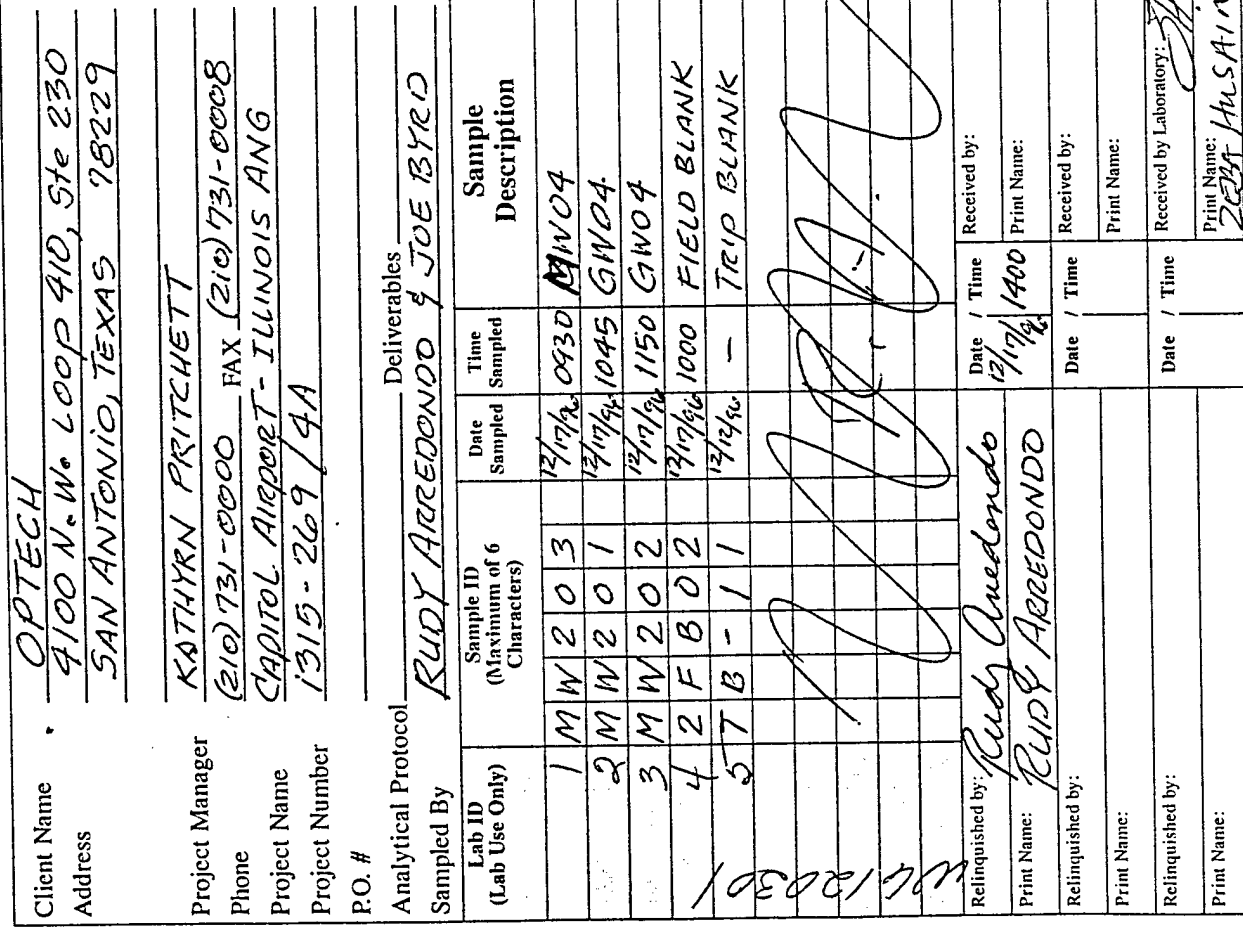 Client Name OPTECH
Address 4100 N.W. LOOP 410, Ste 230
SAN ANTONIO, TEXAS 78229
Project Manager KATHYRN PRITCHETT
Phone (210) 731-0000 FAX (210) 731-0008
Project Name CAPITOL AIRPORT - ILLINOIS ANG
Project Number 1315-269 / 4A
P.O. #
Analytical Protocol Deliverables
Sampled By RUDY ARREDONDO & JOE BYRD
Lab ID (Lab Use Only) Sample ID (Maximum of 6 Characters) Date Sampled Time Sampled Sample Description
1 MW203 12/17/96 0930 MW04
2 MW201 12/17/96 1045 GW04
3 MW202 12/17/96 1150 GW04
4 2FB02 12/17/96 1000 FIELD BLANK
5 TB-11 12/12/96 - TRIP BLANK
Relinquished by: Rudy Arredondo Date / Time Received by:
Print Name: RUDY ARREDONDO 12/17/96 1400 Print Name:
Relinquished by: Date / Time Received by:
Print Name: Print Name:
Relinquished by: Date / Time Received by Laboratory:
Print Name: Print Name: ZEBA HUSAIN